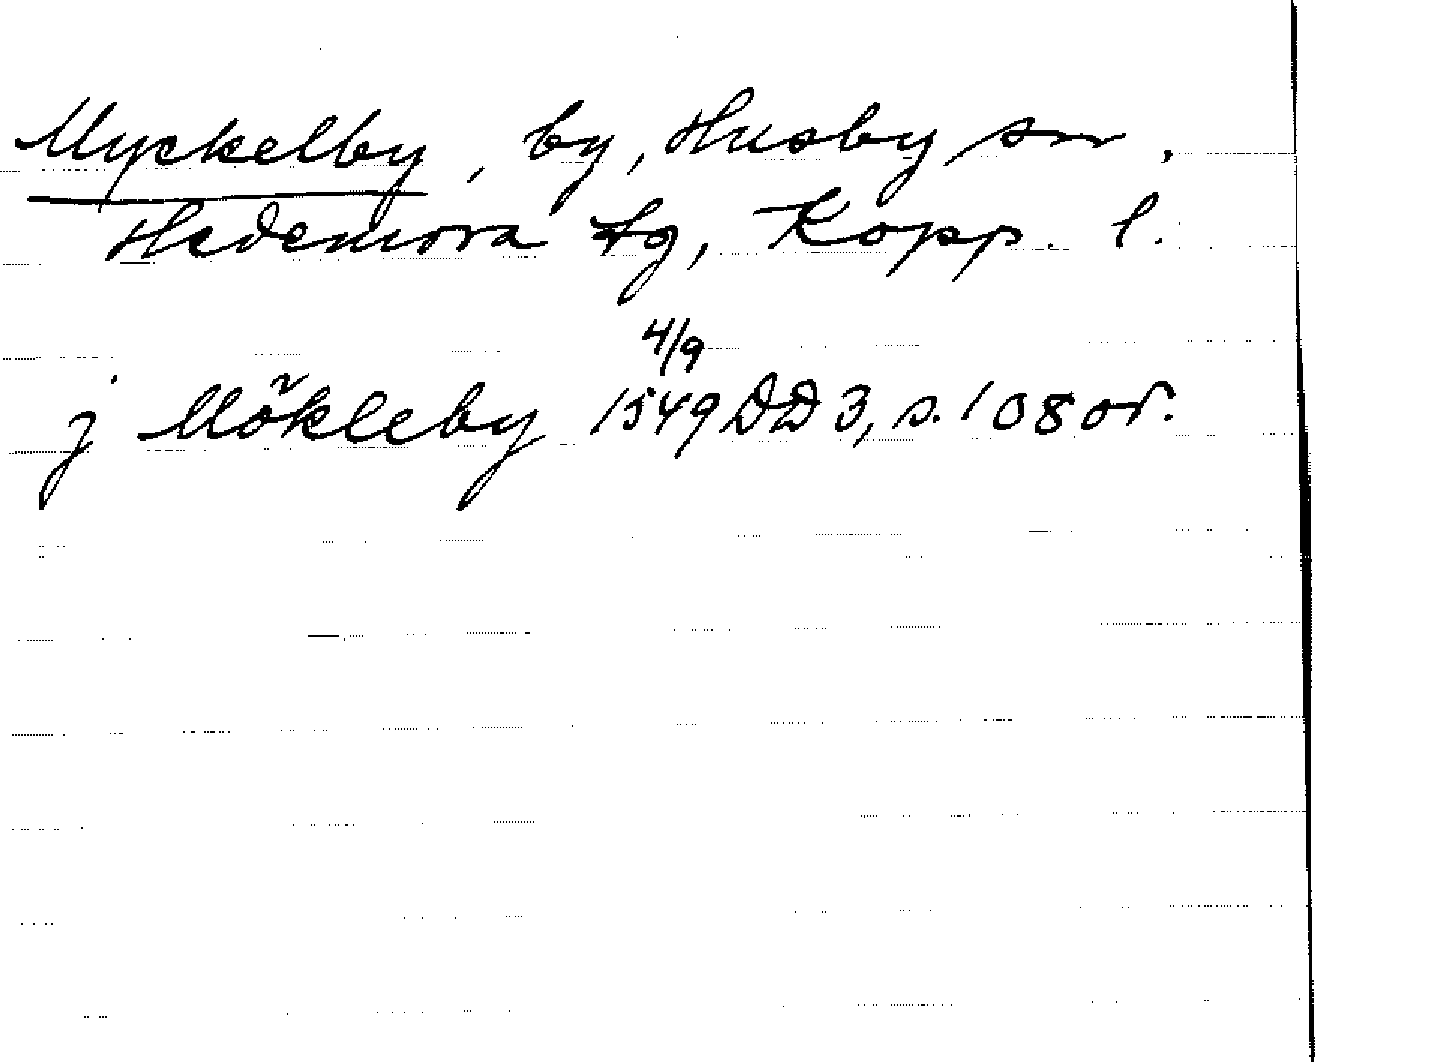 Myckelby, by, Husby sn,
Hedemora tg, Kopp. l.
4/9
j Mökleby 1549 DD 3, s. 108 or.